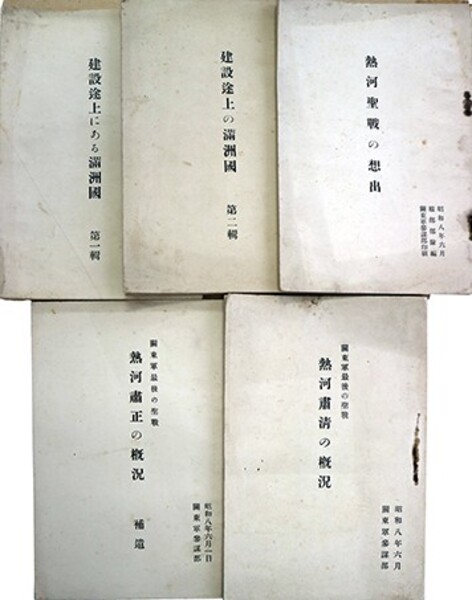 建設途上にある満洲國　第一輯
建設途上の満洲國　第二輯
熱河聖戰の想出
昭和八年六月
關東軍參謀部印刷
關東軍最後の聖戰
熱河肅正の概況　補遺
昭和八年六月一日
關東軍參謀部
關東軍最後の聖戰
熱河肅清の概況
昭和八年六月
關東軍參謀部